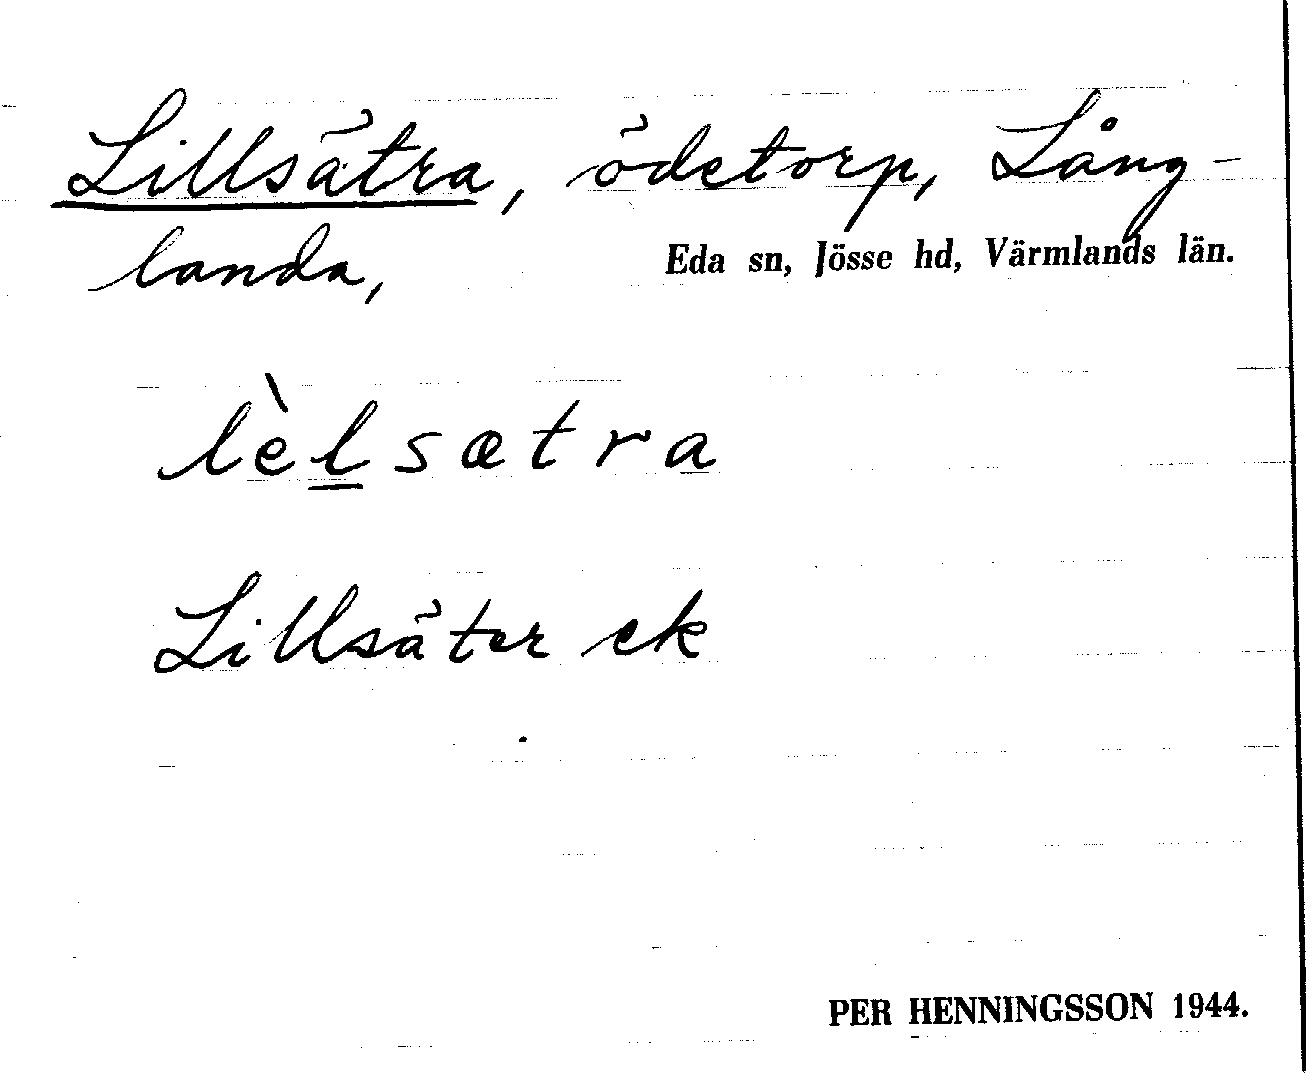 Lillsätra, ödetorp, Lång-
landa, Eda sn, Jösse hd, Värmlands län.
lèl̲sætra
Lillsäter ek
PER HENNINGSSON 1944.